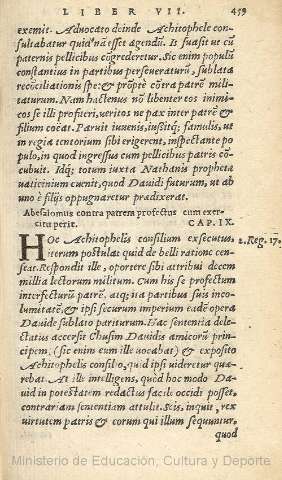 LIBER VII. 459
exemit. Aduocato deinde Achitophele con-
sultabatur quid'nā esset agendū. Is suasit ut cū
paternis pellicibus cōgrederetur. Sic enim populū
constantius in partibus perseueraturū, sublata
recōciliationis spe: & propte cōtra patrē mili-
taturum. Nam hactenus nō libenter eos inimi-
cos se illi profiteri, ueritos ne pax inter patrē &
filium coëat. Paruit iuuenis, iussitq; famulis, ut
in regia tentorium sibi erigerent, inspectante po
pulo, in quod ingressus cum pellicibus patris cō-
cubuit. Idq; totum iuxta Nathanis propheta
uaticinium euenit, quod Dauidi futurum, ut ab
uno è filijs oppugnaretur prædixerat.
Abesalomus contra patrem profectus cum exer-
citu perit. CAP. IX.
HOc Achitophelis consilium executus, 2. Reg. 17.
iterum postulat quid de belli ratione cen-
seat. Respondit ille, oportere sibi attribui decem
millia lectorum militum. Cum his se profectum
interfecturū patrē. atq; ita partibus suis inco-
lumitatē, & ipsi securum imperium eadē opera
Dauide sublato pariturum. Hac sententia dele-
ctatus accersit Chusim Dauidis amicorū prin-
cipem, (sic enim eum ille uocabat) & exposito
Achitophelis consilio, quid ipsi uideretur quæ-
rebat. At ille intelligens, quòd hoc modo Da-
uid in potestatem redactus facile occidi posset,
contrariam sententiam attulit. Scis, inquit, rex
uirtutem patris & eorum qui illum sequuntur,
quod
Ministerio de Educación, Cultura y Deporte